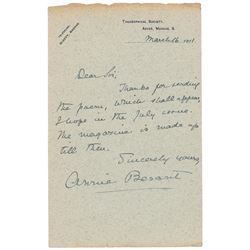 Theosophical Society,
Adyar, Madras, S.
March 16. 1911.
Dear Sir,
Thanks for sending
the poem, which shall appear,
I hope in the July issue.
The magazine is made up
till then.
Sincerely yours,
Annie Besant